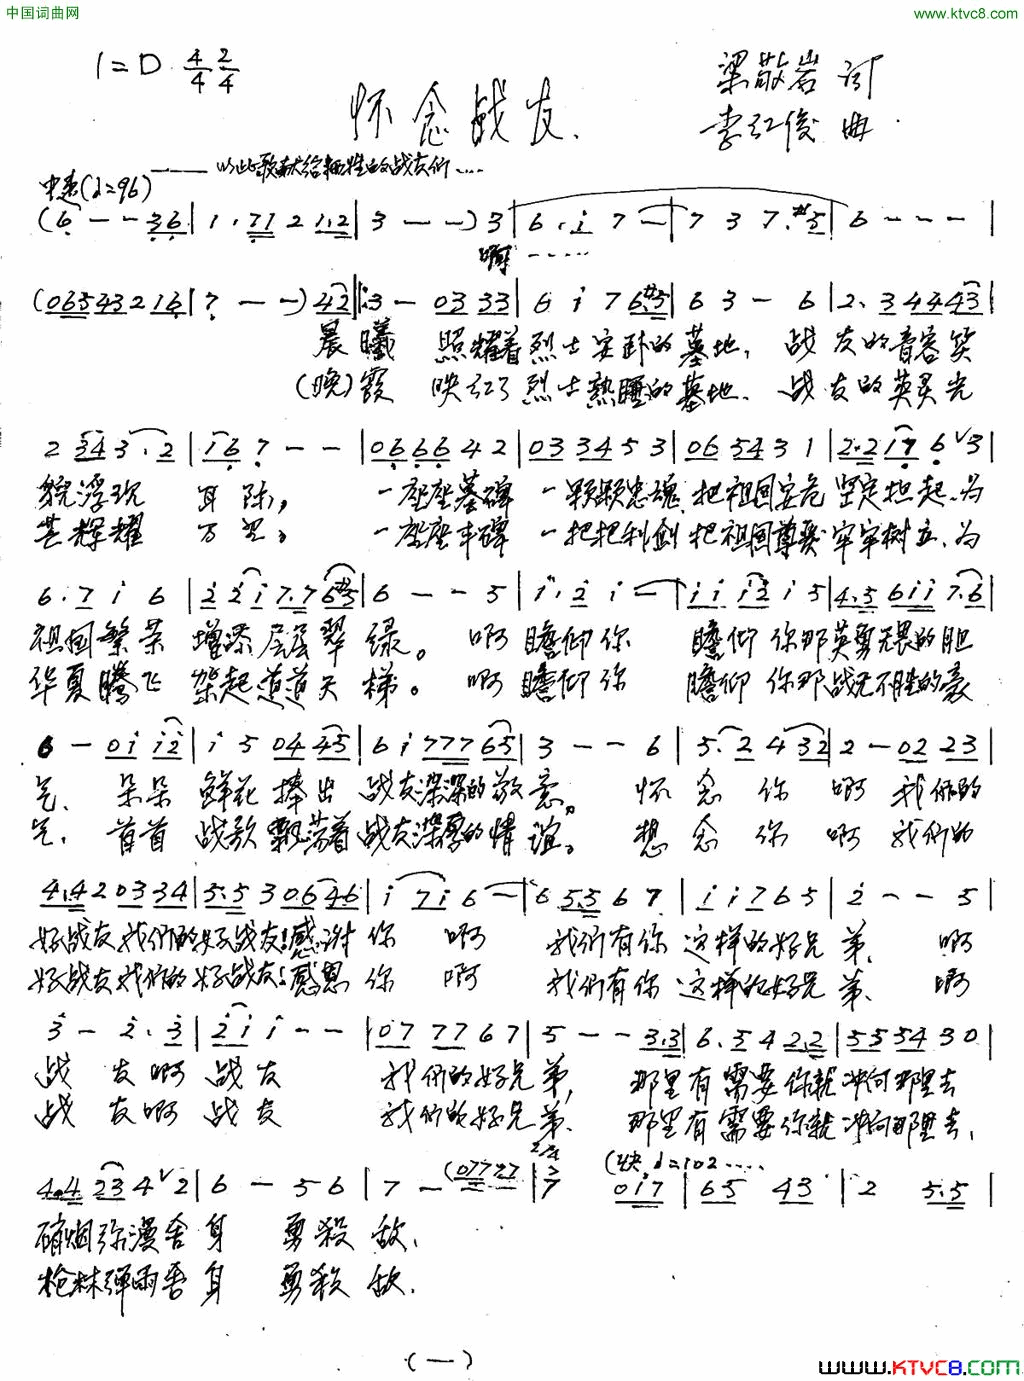 中国词曲网
www.ktvc8.com
1=D 4/4 2/4
梁敬岩 词
怀念战友.
李红俊 曲
——以此歌献给牺牲的战友们....
中速(♩=96)
(6 - - 3 6 | 1 . 7 1 2 1 . 2 | 3 - - ) 3 | 6 . i 7 - | 7 3 7 . #5 | 6 - - - |
啊......
(0 6 5 4 3 2 1 6 | 7 - - ) 4 2 |: 3 - 0 3 3 3 | 6 i 7 6 #5 | 6 3 - 6 | 2 . 3 4 4 4 3 |
晨曦 照耀着烈士安卧的墓地, 战友的音容笑
(晚)霞 映红了烈士熟睡的墓地. 战友的英灵光
2 3 4 3 . 2 | 1 6 7 - - | 0 6 6 6 4 2 | 0 3 3 4 5 3 | 0 6 5 4 3 1 | 2 . 2 1 7 6 ∨ 3 |
貌浮现 耳际, 一座座墓碑 一颗颗忠魂 把祖国安危 坚定担起,为
芒辉耀 万里, 一座座丰碑 一把把利剑 把祖国尊严 牢牢树立,为
6 . 7 i 6 | 2 2 i 7 . 7 6 #5 | 6 - - 5 | i . 2 i - | i i i 2 i 5 | 4 . 5 6 i i 7 . 6 |
祖国繁荣 增添层层翠绿。 啊 瞻仰你 瞻仰你那英勇无畏的胆
华夏腾飞 架起道道天梯。 啊 瞻仰你 瞻仰你那战无不胜的豪
6 - 0 i i 2 | i 5 0 4 4 5 | 6 i 7 7 7 6 5 | 3 - - 6 | 5 . 2 4 3 2 | 2 - 0 2 2 3 |
气. 朵朵 鲜花 捧出 战友深深的敬意。 怀念你 啊 我们的
气. 首首 战歌飘荡着战友深厚的情谊。 想念你 啊 我们的
4 . 4 2 0 3 3 4 | 5 . 5 3 0 6 4 6 | i 7 i 6 - | 6 5 . 5 6 7 | i i 7 6 5 | 2 - - 5 |
好战友我们的好战友!感谢你 啊 我们有你 这样的好兄弟. 啊
好战友我们的好战友!感恩你 啊 我们有你 这样的好兄弟. 啊
3 - 2 . 3 | 2 i i - - | 0 7 7 7 6 7 | 5 - - 3 . 3 | 6 . 5 4 2 . 2 | 5 5 5 4 3 0 |
战友啊 战友 我们的好兄弟, 那里有需要你就冲向那里去
战友啊 战友 我们的好兄弟. 那里有需要你就冲向那里去,
(快 ♩=102....
4 . 4 2 3 4 ∨ 2 | 6 - 5 6 | 7 - (0 7 7 7 7 | 7 0 i 7 | 6 5 4 3 | 2 5 . 5 |
硝烟弥漫舍身 勇殺敌.
枪林弹雨舍身 勇殺敌.
(一)
www.KTVC8.com